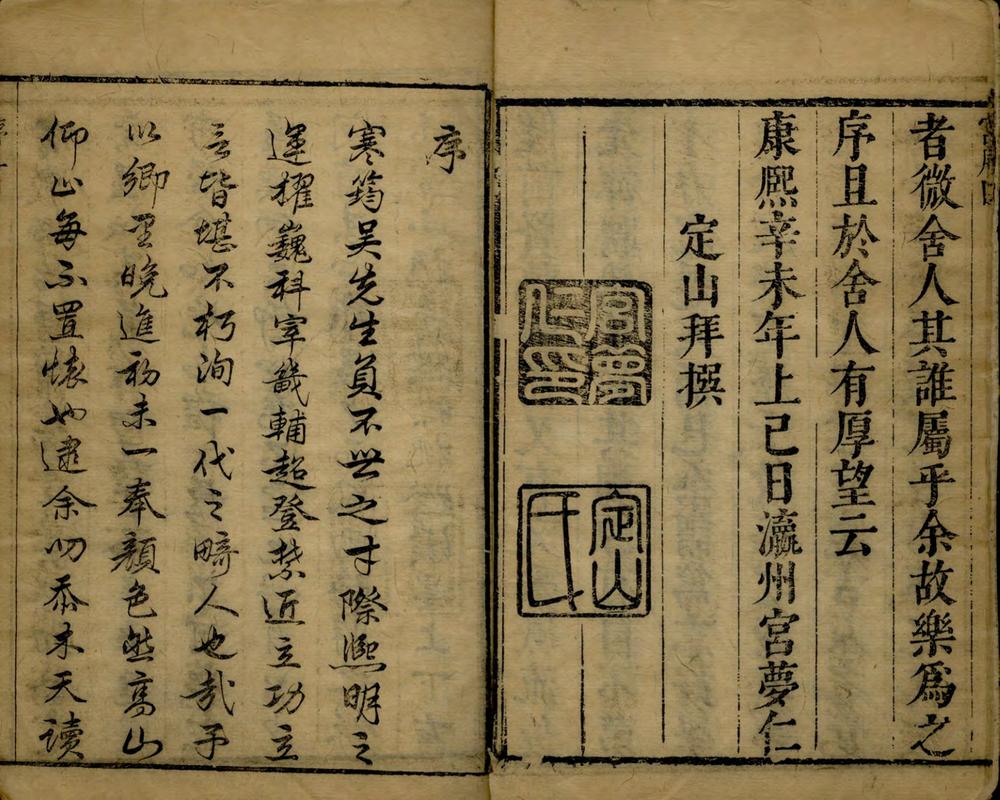 者微舍人其誰屬乎余故樂爲之
序且於舍人有厚望云
康熙辛未年上巳日瀛州宮夢仁
定山拜撰
宮夢
仁印
定山
氏
序
寒筠吴先生負不世之才際熈明之
運擢巍科宰畿輔超登禁近立功立
言皆堪不朽洵一代之畸人也哉予
以鄉里晚進初未一奉顏色然高山
仰止每不置懷也逮余叨忝木天讀